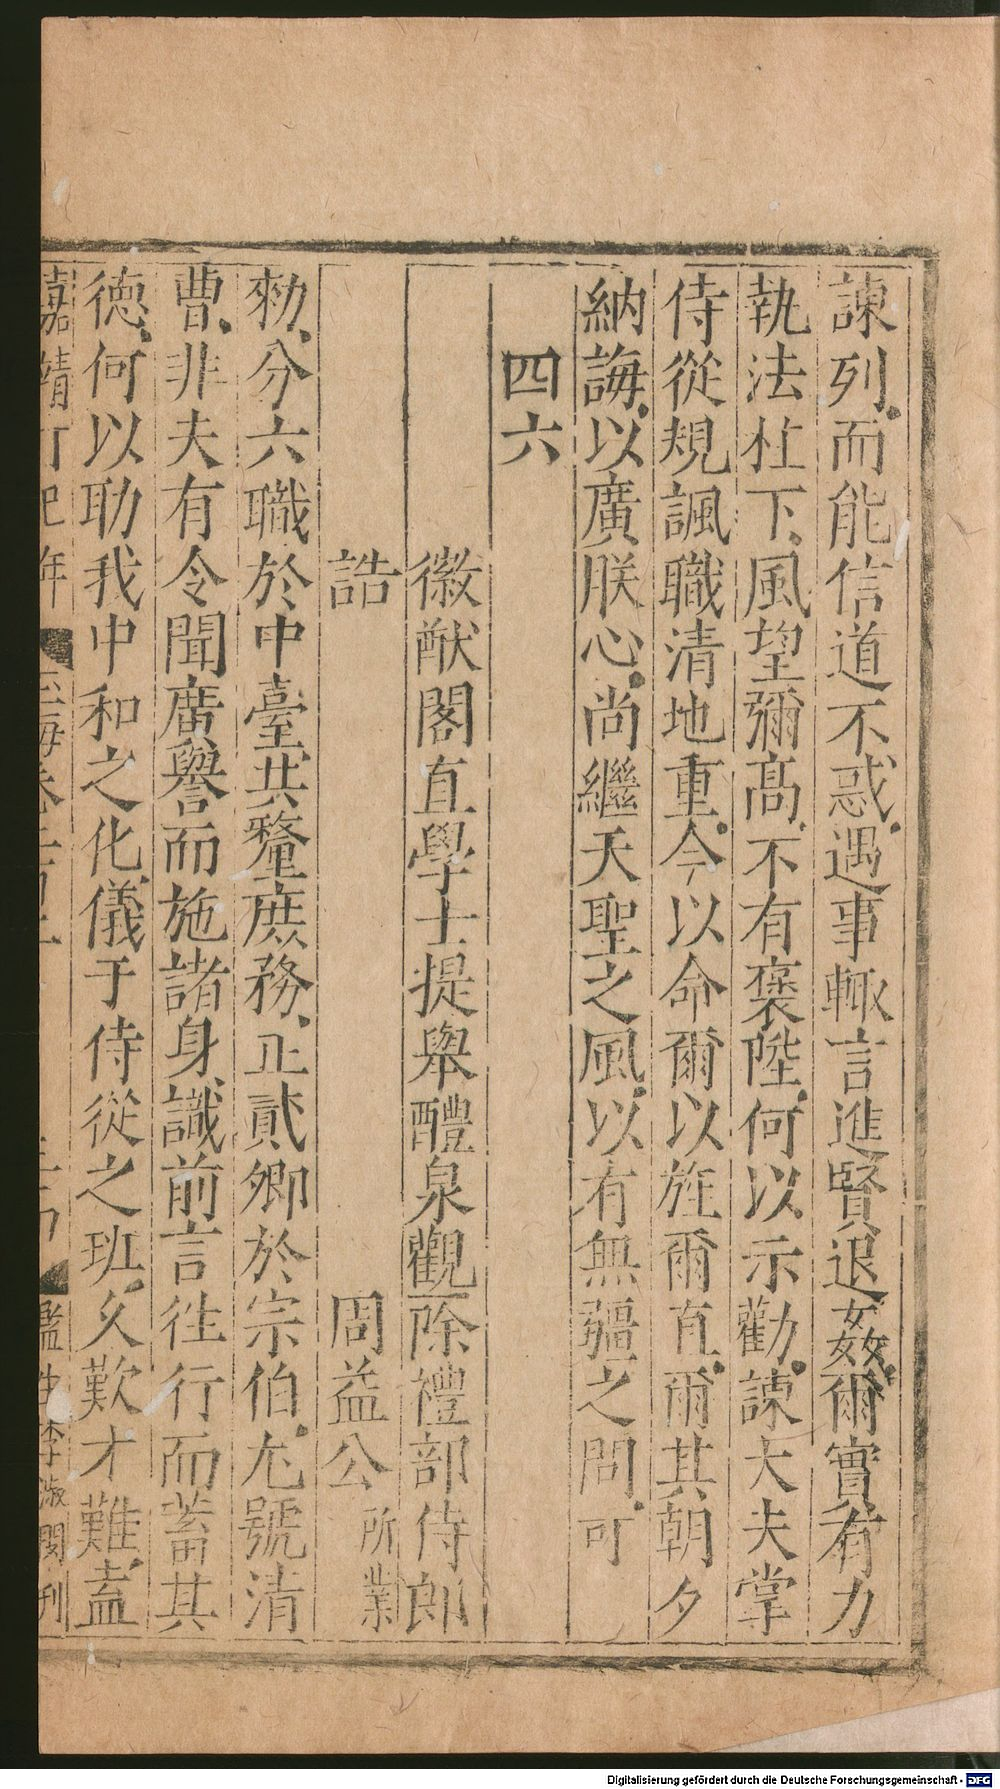 諫列而能信道不惑遇事輙言進賢退姦爾實有力
執法柱下風望彌髙不有褒陞何以示勸諫大夫掌
侍從規諷職清地重今以命爾以旌爾直爾其朝夕
納誨以廣朕心尚繼天聖之風以有無疆之問可
四六
徽猷閣直學士提舉醴泉觀除禮部侍郎
誥 周益公所業
勑分六職於中臺共釐庶務正貳卿於宗伯尤號清
曹非夫有令聞廣譽而施諸身識前言徃行而蓄其
德何以助我中和之化儀于侍從之班久歎才難盍
嘉靖丁巳年 玉海卷二百二 監生李淑閔刊
Digitalisierung gefördert durch die Deutsche Forschungsgemeinschaft - DFG